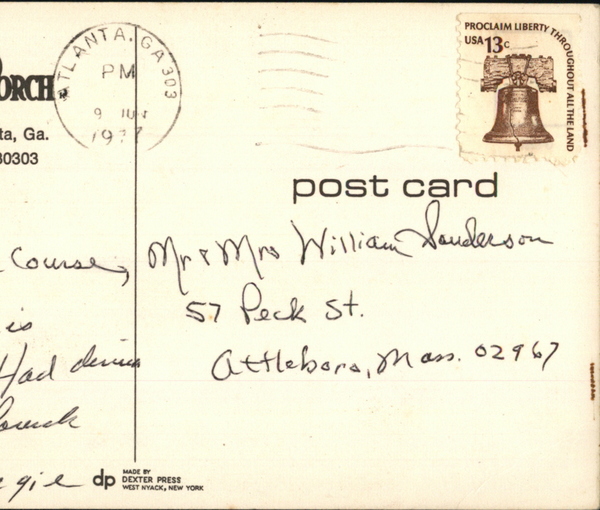 PROCLAIM LIBERTY THROUGHOUT ALL THE LAND
USA 13c
ATLANTA, GA 303
PM
9 JUN
1977
ORCH
ta, Ga.
30303
post card
Course,
Mr & Mrs William Sanderson
57 Peck St.
Attleboro, Mass. 02967
is
Had
gie
dp
MADE BY
DEXTER PRESS
WEST NYACK, NEW YORK